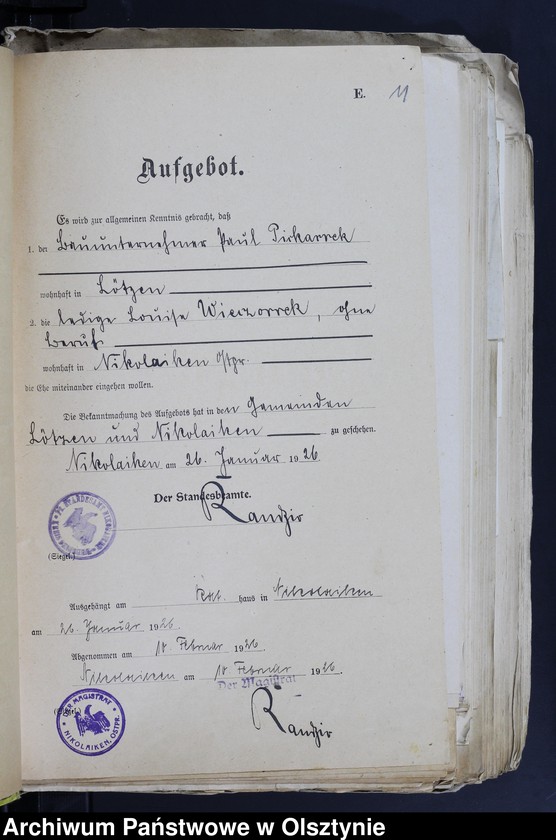 E. 11
Aufgebot.
Es wird zur allgemeinen Kenntnis gebracht, daß
1. der Bauunternehmer Paul Piekarrek
wohnhaft in Lötzen
2. die ledige Louise Wieczorrek, ohne
Beruf
wohnhaft in Nikolaiken Ostpr.
die Ehe miteinander eingehen wollen.
Die Bekanntmachung des Aufgebots hat in den Gemeinden
Lötzen und Nikolaiken zu geschehen.
Nikolaiken am 26. Januar 1926.
Der Standesbeamte.
Randzir
(Siegel.)
Ausgehängt am haus in Nikolaiken
am 26. Januar 1926.
Abgenommen am 10 Februar 1926.
Nikolaiken am 10 Februar 1926.
Der Magistrat
(Siegel.)
DER MAGISTRAT
NIKOLAIKEN, OSTPR.
Randzir
Archiwum Państwowe w Olsztynie